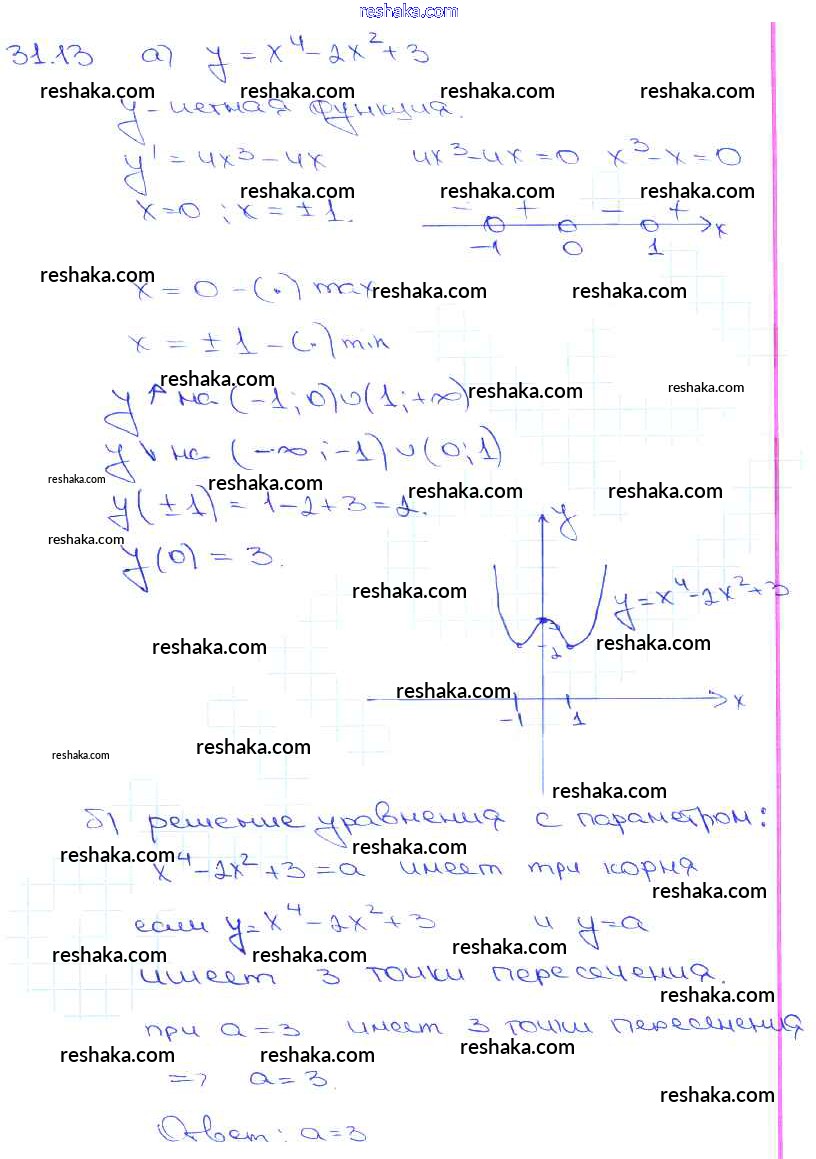 reshaka.com
31.13 а) y = x⁴ - 2x² + 3
reshaka.com reshaka.com reshaka.com reshaka.com
y - четная функция.
y' = 4x³ - 4x 4x³ - 4x = 0 x³ - x = 0
reshaka.com reshaka.com
x = 0 ; x = ± 1. - + - + x
-1 0 1
reshaka.com
x = 0 - (.) max reshaka.com reshaka.com
x = ± 1 - (.) min
reshaka.com reshaka.com reshaka.com
y ↑ на (-1; 0) ∪ (1; +∞)
y ↓ на (-∞; -1) ∪ (0; 1)
reshaka.com reshaka.com reshaka.com reshaka.com
y(±1) = 1 - 2 + 3 = 2.
reshaka.com y
y(0) = 3.
reshaka.com y = x⁴ - 2x² + 3
3
reshaka.com 2 reshaka.com
reshaka.com x
-1 1
reshaka.com reshaka.com
reshaka.com
б) решение уравнения с параметром:
reshaka.com reshaka.com
x⁴ - 2x² + 3 = a имеет три корня
reshaka.com
если y = x⁴ - 2x² + 3 и y = a
reshaka.com reshaka.com reshaka.com
имеет 3 точки пересечения.
reshaka.com
при a = 3 имеет 3 точки пересечения
reshaka.com reshaka.com reshaka.com
=> a = 3.
reshaka.com
Ответ: a = 3